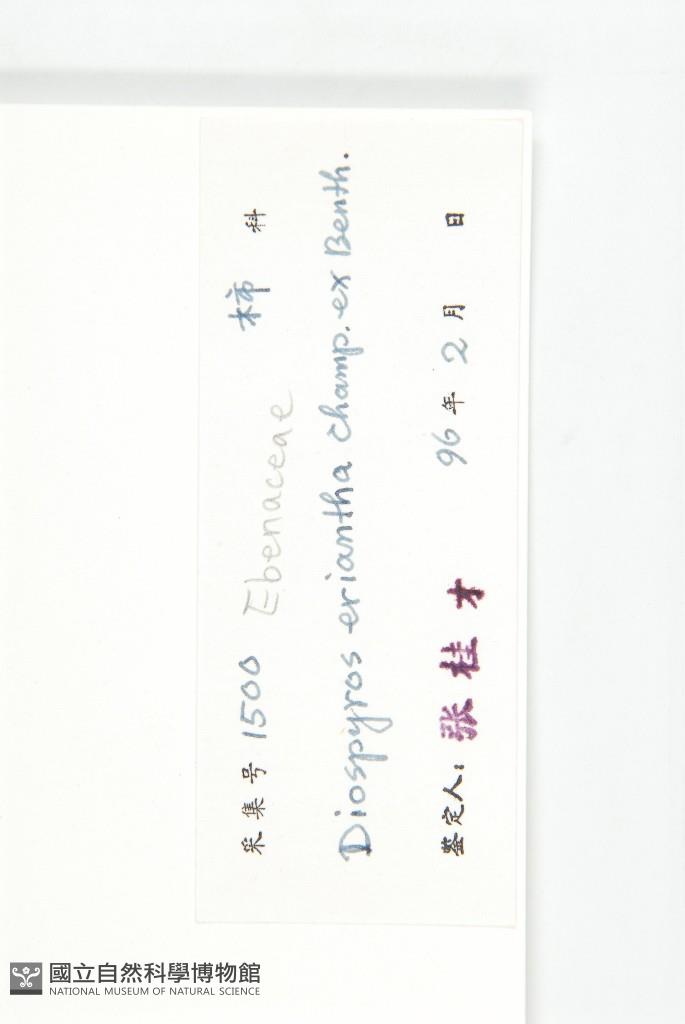 采集号 1500 Ebenaceae 柿 科
Diospyros eriantha champ. ex Benth.
鉴定人: 张桂才 96 年 2 月 日
國立自然科學博物館
NATIONAL MUSEUM OF NATURAL SCIENCE